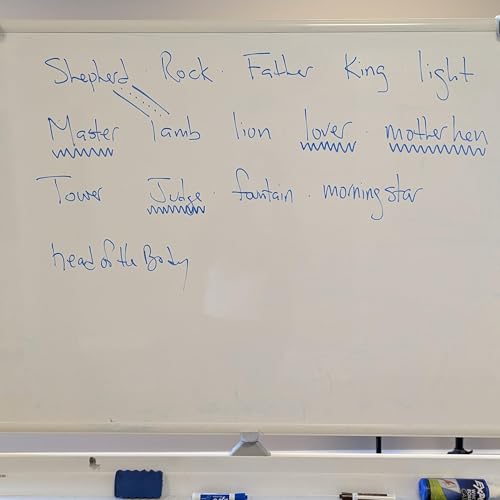 Shepherd · Rock · Father King light
Master lamb lion lover · mother hen
Tower Judge · fountain · morning star
head of the Body
EXPO